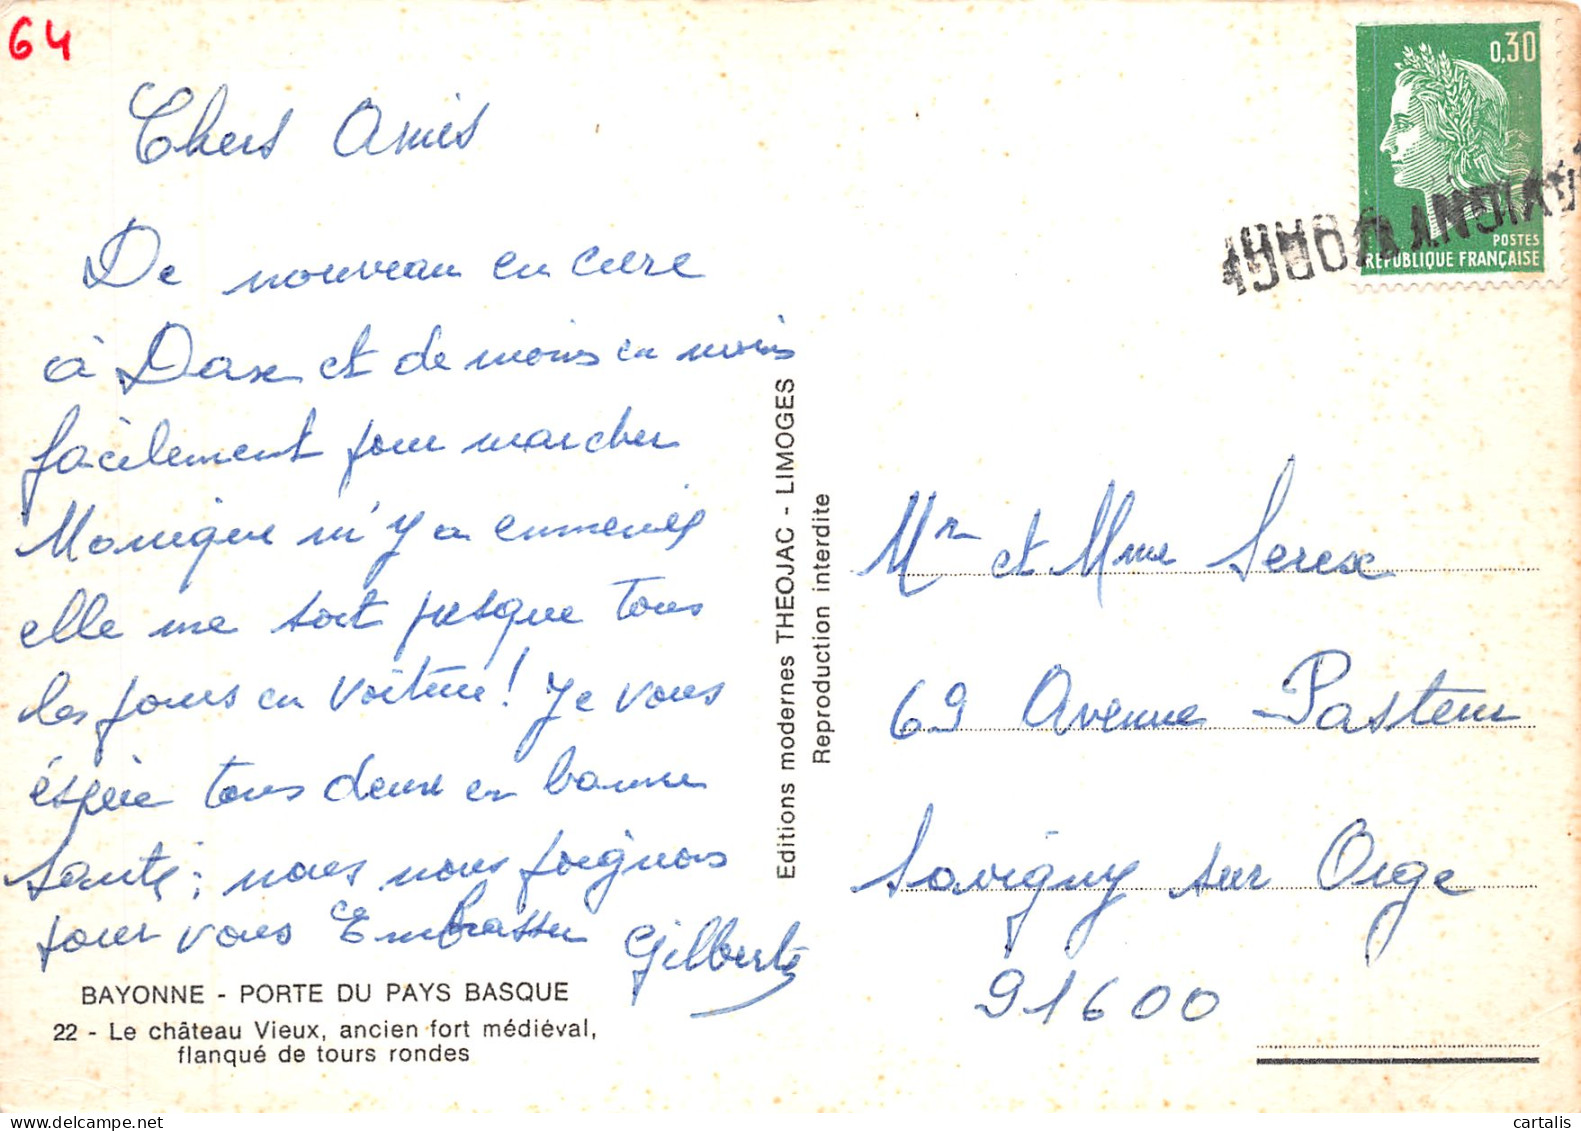 64
Chers Amis
De nouveau en cure
à Dax et de moins en moins
facilement pour marcher
Monique m'y a emmenée
elle me sort presque tous
les jours en voiture! Je vous
espère tous deux en bonne
santé; nous nous joignons
pour vous Embrasser
Gilberte
BAYONNE - PORTE DU PAYS BASQUE
22 - Le château Vieux, ancien fort médiéval,
flanqué de tours rondes
Editions modernes THEOJAC - LIMOGES
Reproduction interdite
0,30
POSTES
REPUBLIQUE FRANÇAISE
Mr et Mme Serex
69 Avenue Pasteur
Savigny sur Orge
91600
cartalis